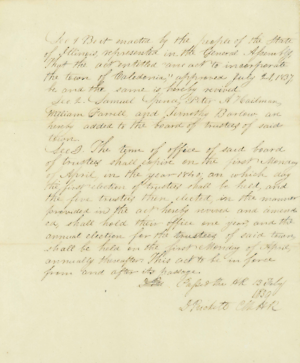 Sec 1 Be it enacted by the people of the State
of Illinois, represented in the General Assembly
That the act entitled an act to incorporate
the town of Caledonia, approved July 22 1837
be and the same is hereby revived
Sec 2. Samuel Spring, A
William Farrell and Timothy Barlow, are
hereby added to the board of trustees of said
town.
Sec 3. The term of office of said board
of trustees shall expire on the first Monday
of April in the year 1840, on which day
the first election of trustees shall be held, and
the five trustees then elected, in the manner
provided in the act hereby revived and
shall hold their office one year, and the
annual election for the trustees of said town,
shall be held on the first Monday of April,
annually thereafter. This act to be in force
from and after its passage.
Passed the H.R. 13 Feby
1839
Prickett C H R